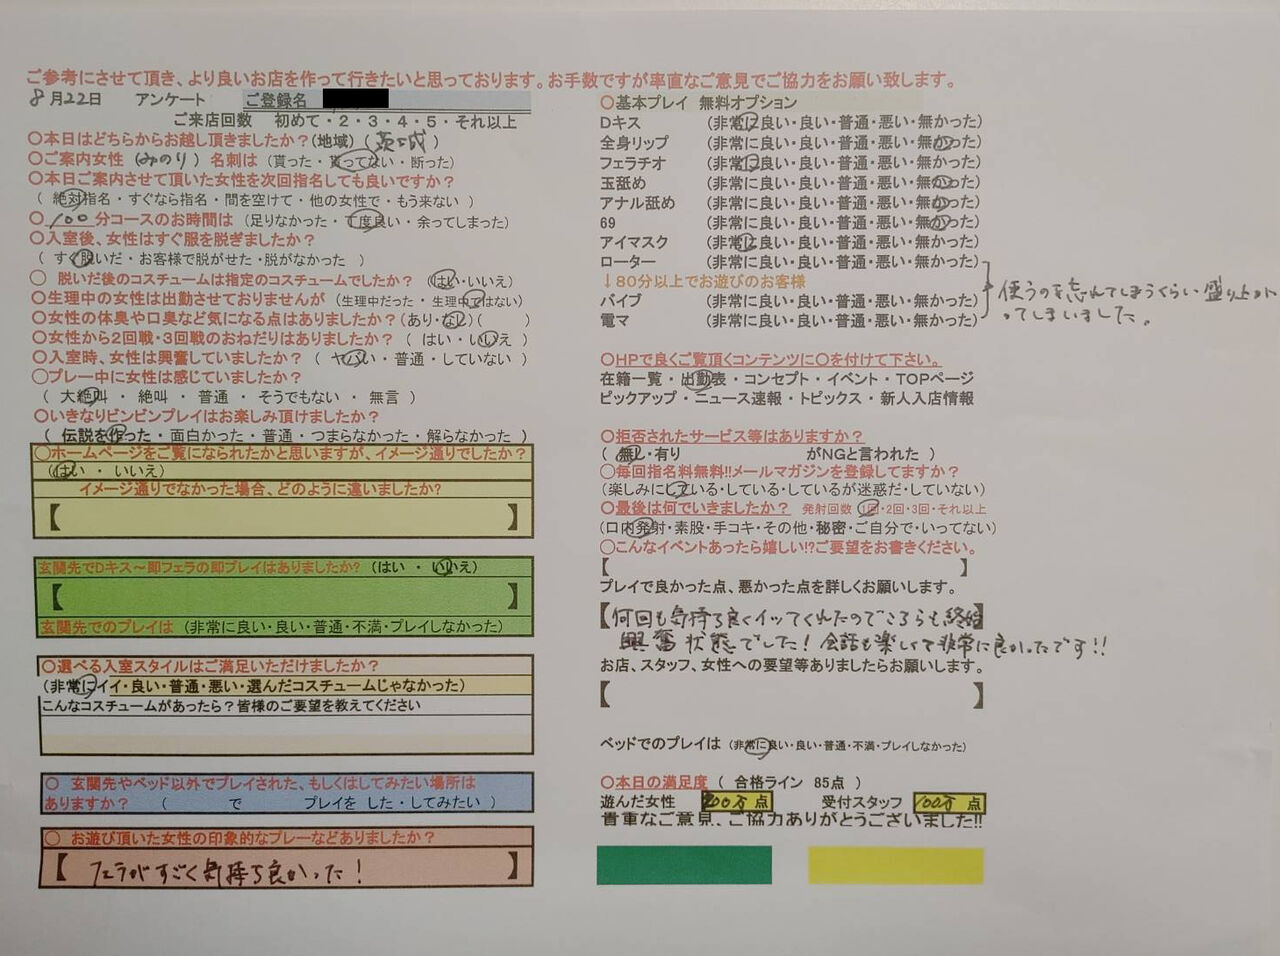 ご参考にさせて頂き、より良いお店を作って行きたいと思っております。お手数ですが率直なご意見でご協力をお願い致します。
8月22日 アンケート ご登録名
ご来店回数 初めて・2・3・4・5・それ以上
〇本日はどちらからお越し頂きましたか?(地域)(茨城)
〇ご案内女性(みのり)名刺は(貰った・貰ってない・断った)
〇本日ご案内させて頂いた女性を次回指名しても良いですか?
(絶対指名・すぐなら指名・間を空けて・他の女性で・もう来ない)
〇100分コースのお時間は(足りなかった・丁度良い・余ってしまった)
〇入室後、女性はすぐ服を脱ぎましたか?
(すぐ脱いだ・お客様で脱がせた・脱がなかった )
〇 脱いだ後のコスチュームは指定のコスチュームでしたか? (はい・いいえ)
〇生理中の女性は出勤させておりませんが(生理中だった・生理中ではない)
〇女性の体臭や口臭など気になる点はありましたか?(あり・なし)( )
〇女性から2回戦・3回戦のおねだりはありましたか?( はい・いいえ )
〇入室時、女性は興奮していましたか?( ヤバい・普通・していない)
〇プレー中に女性は感じていましたか?
( 大絶叫・絶叫・普通・そうでもない・無言 )
〇いきなりビンビンプレイはお楽しみ頂けましたか?
( 伝説を作った・面白かった・普通・つまらなかった・解らなかった )
〇ホームページをご覧になられたかと思いますが、イメージ通りでしたか?
(はい・いいえ)
イメージ通りでなかった場合、どのように違いましたか?
【 】
玄関先でDキス～即フェラの即プレイはありましたか? (はい・いいえ)
【 】
玄関先でのプレイは(非常に良い・良い・普通・不満・プレイしなかった)
〇選べる入室スタイルはご満足いただけましたか?
(非常にイイ・良い・普通・悪い・選んだコスチュームじゃなかった)
こんなコスチュームがあったら?皆様のご要望を教えてください
〇 玄関先やベッド以外でプレイされた、もしくはしてみたい場所は
ありますか? ( で プレイを した・してみたい )
〇 お遊び頂いた女性の印象的なプレーなどありましたか?
【 フェラがすごく気持ち良かった! 】
〇基本プレイ 無料オプション
Dキス (非常に良い・良い・普通・悪い・無かった)
全身リップ (非常に良い・良い・普通・悪い・無かった)
フェラチオ (非常に良い・良い・普通・悪い・無かった)
玉舐め (非常に良い・良い・普通・悪い・無かった)
アナル舐め (非常に良い・良い・普通・悪い・無かった)
69 (非常に良い・良い・普通・悪い・無かった)
アイマスク (非常に良い・良い・普通・悪い・無かった)
ローター (非常に良い・良い・普通・悪い・無かった)
↓80分以上でお遊びのお客様
バイブ (非常に良い・良い・普通・悪い・無かった)
電マ (非常に良い・良い・普通・悪い・無かった)
使うのを忘れてしまうくらい盛り上が
ってしまいました。
〇HPで良くご覧頂くコンテンツに〇を付けて下さい。
在籍一覧・出勤表・コンセプト・イベント・TOPページ
ピックアップ・ニュース速報・トピックス・新人入店情報
〇拒否されたサービス等はありますか?
( 無し・有り がNGと言われた )
〇毎回指名料無料!!メールマガジンを登録してますか?
(楽しみにしている・している・しているが迷惑だ・していない)
〇最後は何でいきましたか? 発射回数 1回・2回・3回・それ以上
(口内発射・素股・手コキ・その他・秘密・ご自分で・いってない)
〇こんなイベントあったら嬉しい!?ご要望をお書きください。
【 】
プレイで良かった点、悪かった点を詳しくお願いします。
【何回も気持ち良くイッてくれたのでこちらも終始】
興奮状態でした!会話も楽しくて非常に良かったです!!
お店、スタッフ、女性への要望等ありましたらお願いします。
【 】
ベッドでのプレイは (非常に良い・良い・普通・不満・プレイしなかった)
〇本日の満足度 ( 合格ライン 85点 )
遊んだ女性 200万点 受付スタッフ 100万点
貴重なご意見、ご協力ありがとうございました!!